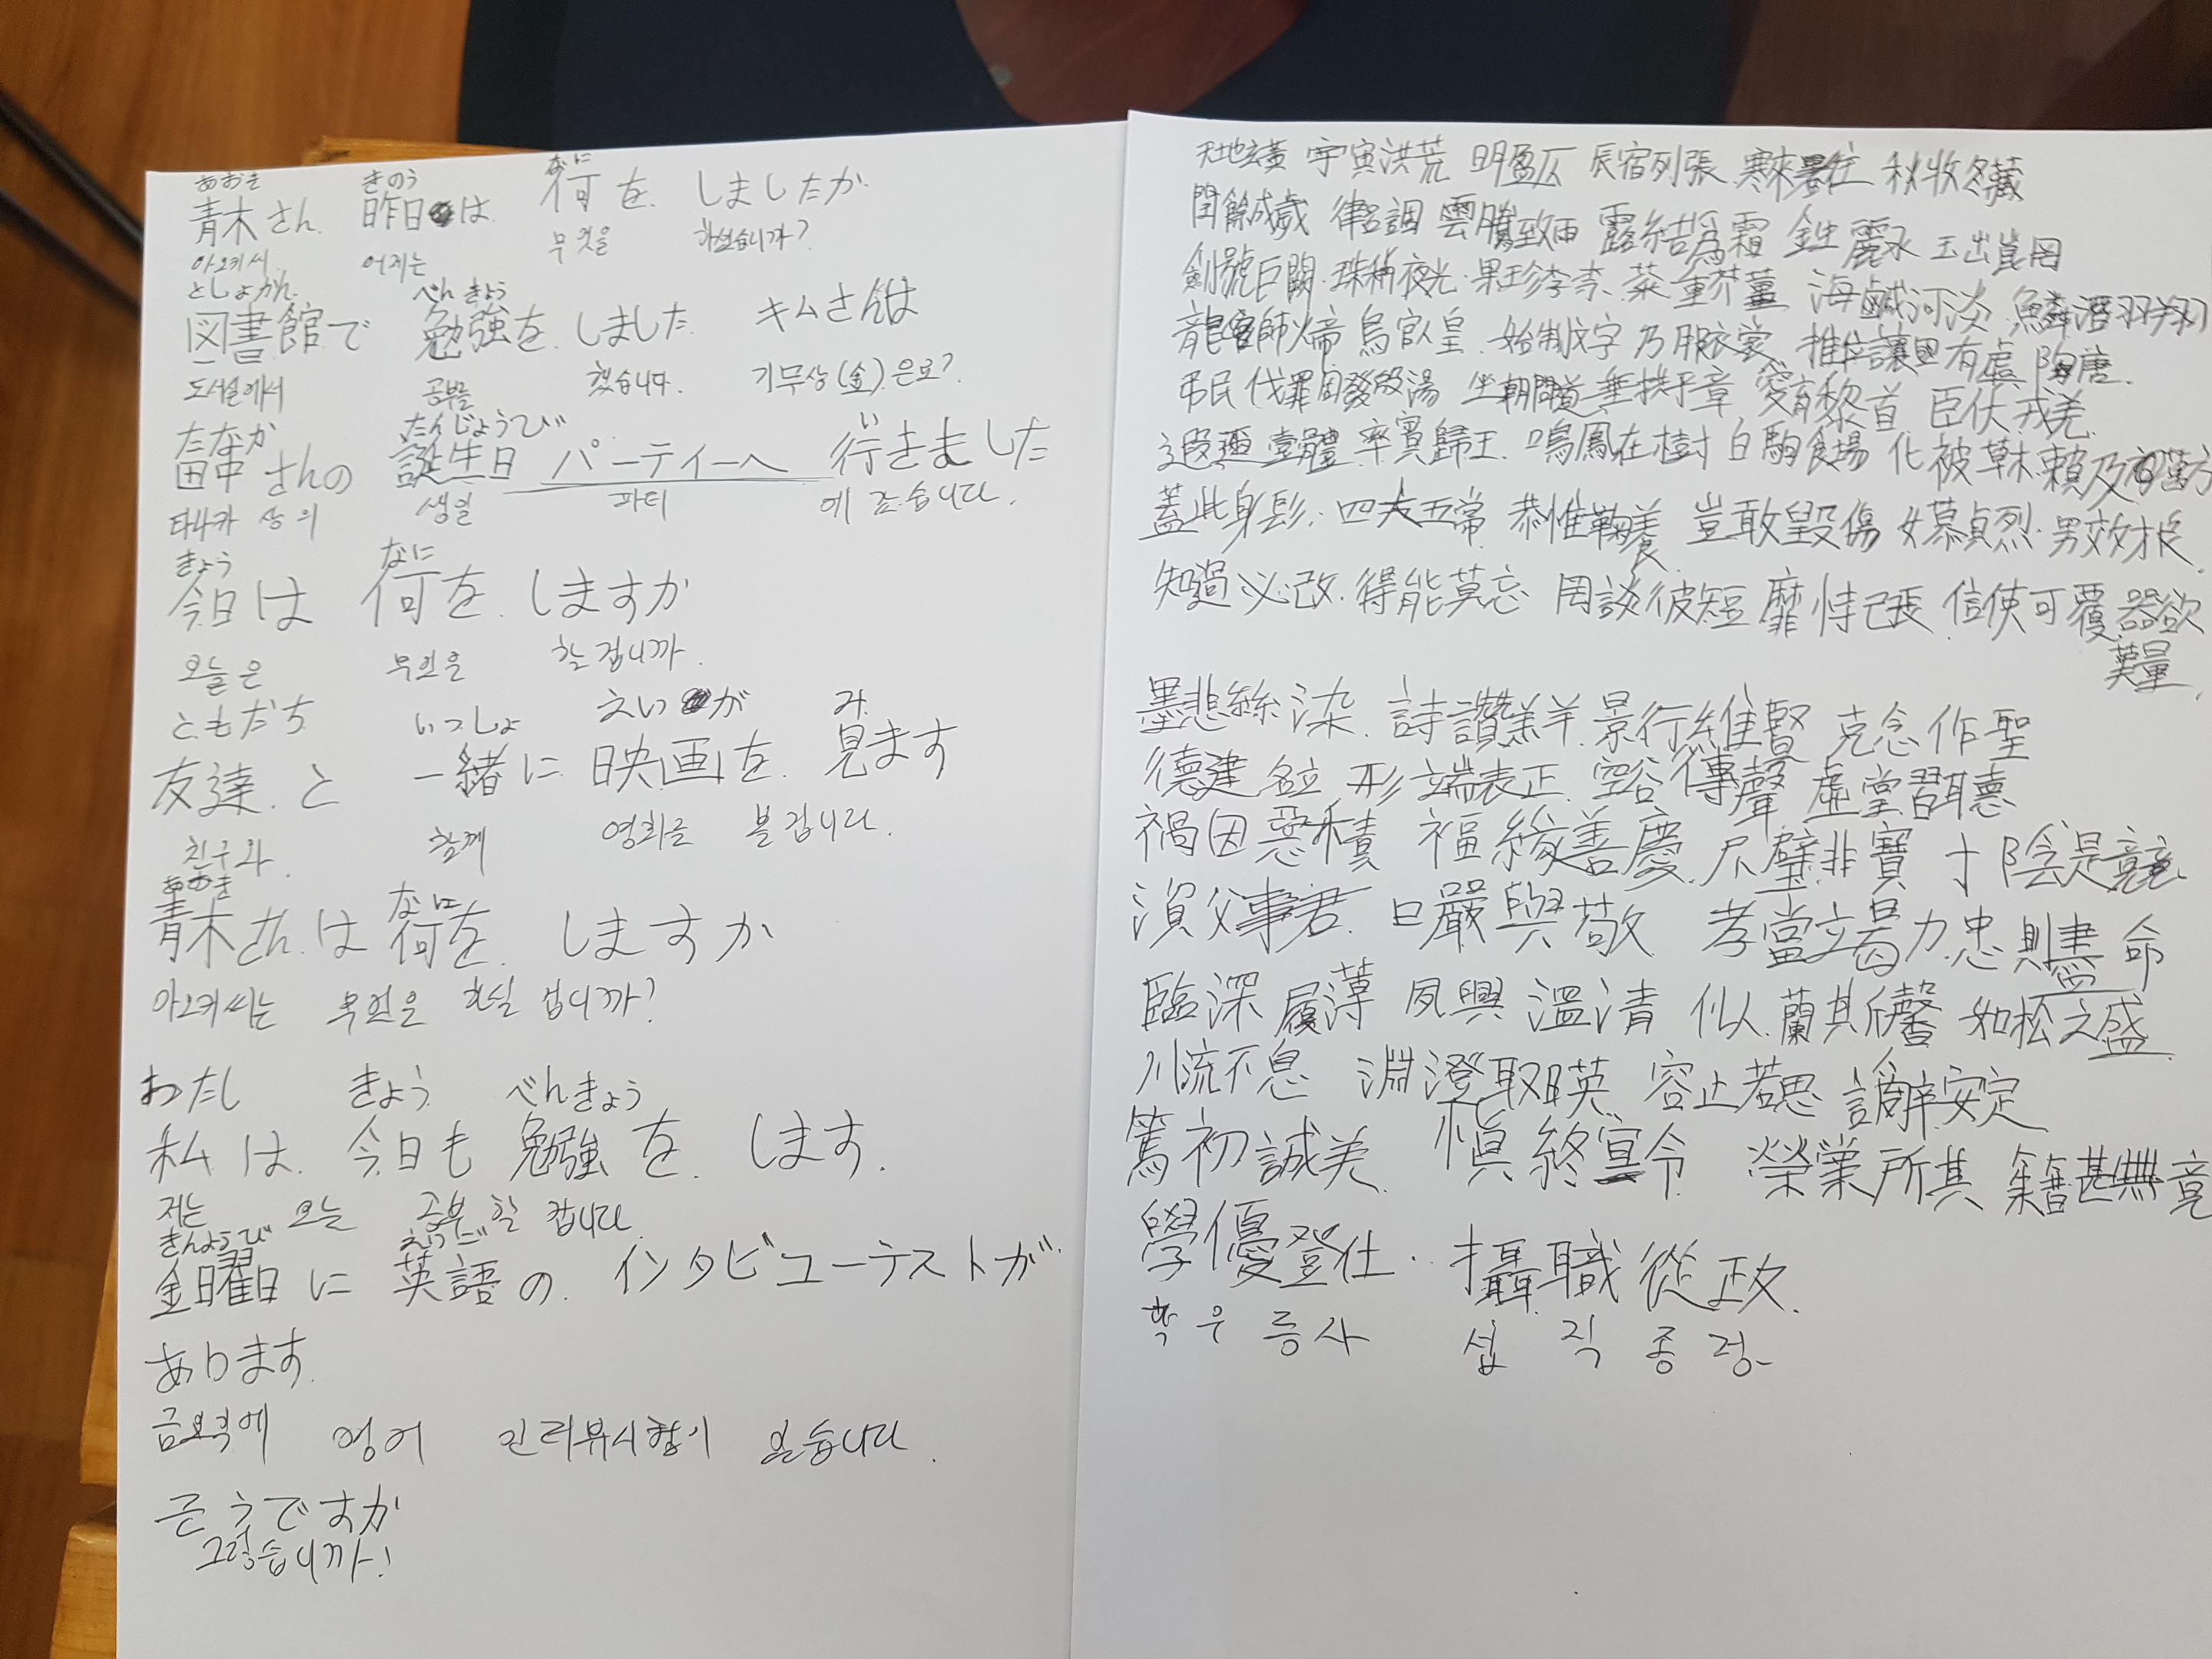 あおき きのう なに
青木さん. 昨日は 何を. しましたか.
아오키씨 어제는 무엇을 하셨습니까?
としょかん. べんきょう
図書館で 勉強を. しました. キムさんは
도서실에서 공부를 했습니다. 기무상(金).은요?
たなか たんじょうび い
田中さんの 誕生日 パーティーへ 行きました
타나카 상의 생일 파티 에 갔습니다.
きょう なに
今日は 何を. しますか
오늘은 무엇을 할겁니까.
ともだち いっしょ えいが み
友達. と 一緒に 映画を. 見ます
친구와. 함께 영화를 볼겁니다.
あおき なに
青木さん. は 何を. しますか
아오키씨는 무엇을 하실 겁니까?
わたし きょう べんきょう
私は. 今日も 勉強を. します.
저는 오늘 공부할 겁니다
きんようび えいご
金曜日に 英語の. インタビューテストが
あります.
금요일에 영어 인터뷰시험이 있습니다.
そうですか
그렇습니까!
天地玄黃 宇宙洪荒 日月盈仄 辰宿列張. 寒來暑往 秋收冬藏
閏餘成歲 律呂調 雲騰致雨 露結爲霜 金生麗水 玉出崑岡
劍號巨闕. 珠稱夜光. 果珍李柰. 菜重芥薑 海鹹河淡. 鱗潛羽翔
龍師火帝 鳥官人皇. 始制文字 乃服衣裳. 推位讓國 有虞陶唐.
弔民伐罪 周發殷湯 坐朝問道 垂拱平章 愛育黎首. 臣伏戎羌.
遐邇壹體. 率賓歸王. 鳴鳳在樹 白駒食場 化被草木 賴及萬方
蓋此身髮. 四大五常 恭惟鞠養 豈敢毀傷 女慕貞烈. 男效才良.
知過必改. 得能莫忘 罔談彼短 靡恃己長. 信使可覆. 器欲
難量.
墨悲絲染. 詩讚羔羊. 景行維賢 克念作聖
德建名立 形端表正. 空谷傳聲 虛堂習聽
禍因惡積 福緣善慶. 尺璧非寶 寸陰是競
資父事君. 曰嚴與敬 孝當竭力. 忠則盡命
臨深履薄 夙興溫凊 似蘭斯馨 如松之盛
川流不息 淵澄取映 容止若思 言辭安定
篤初誠美. 愼終宜令 榮業所基 籍甚無竟
學優登仕. 攝職從政.
학우등사 섭직종정